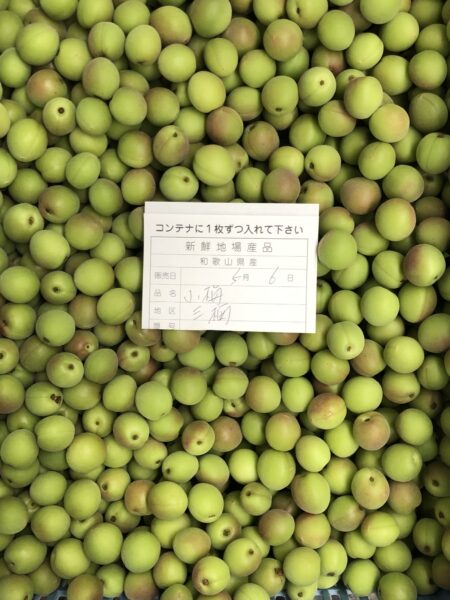 コンテナに1枚ずつ入れて下さい
新鮮地場産品
和歌山県産
販売日 5月 6日
品名 小梅
地区 三栖